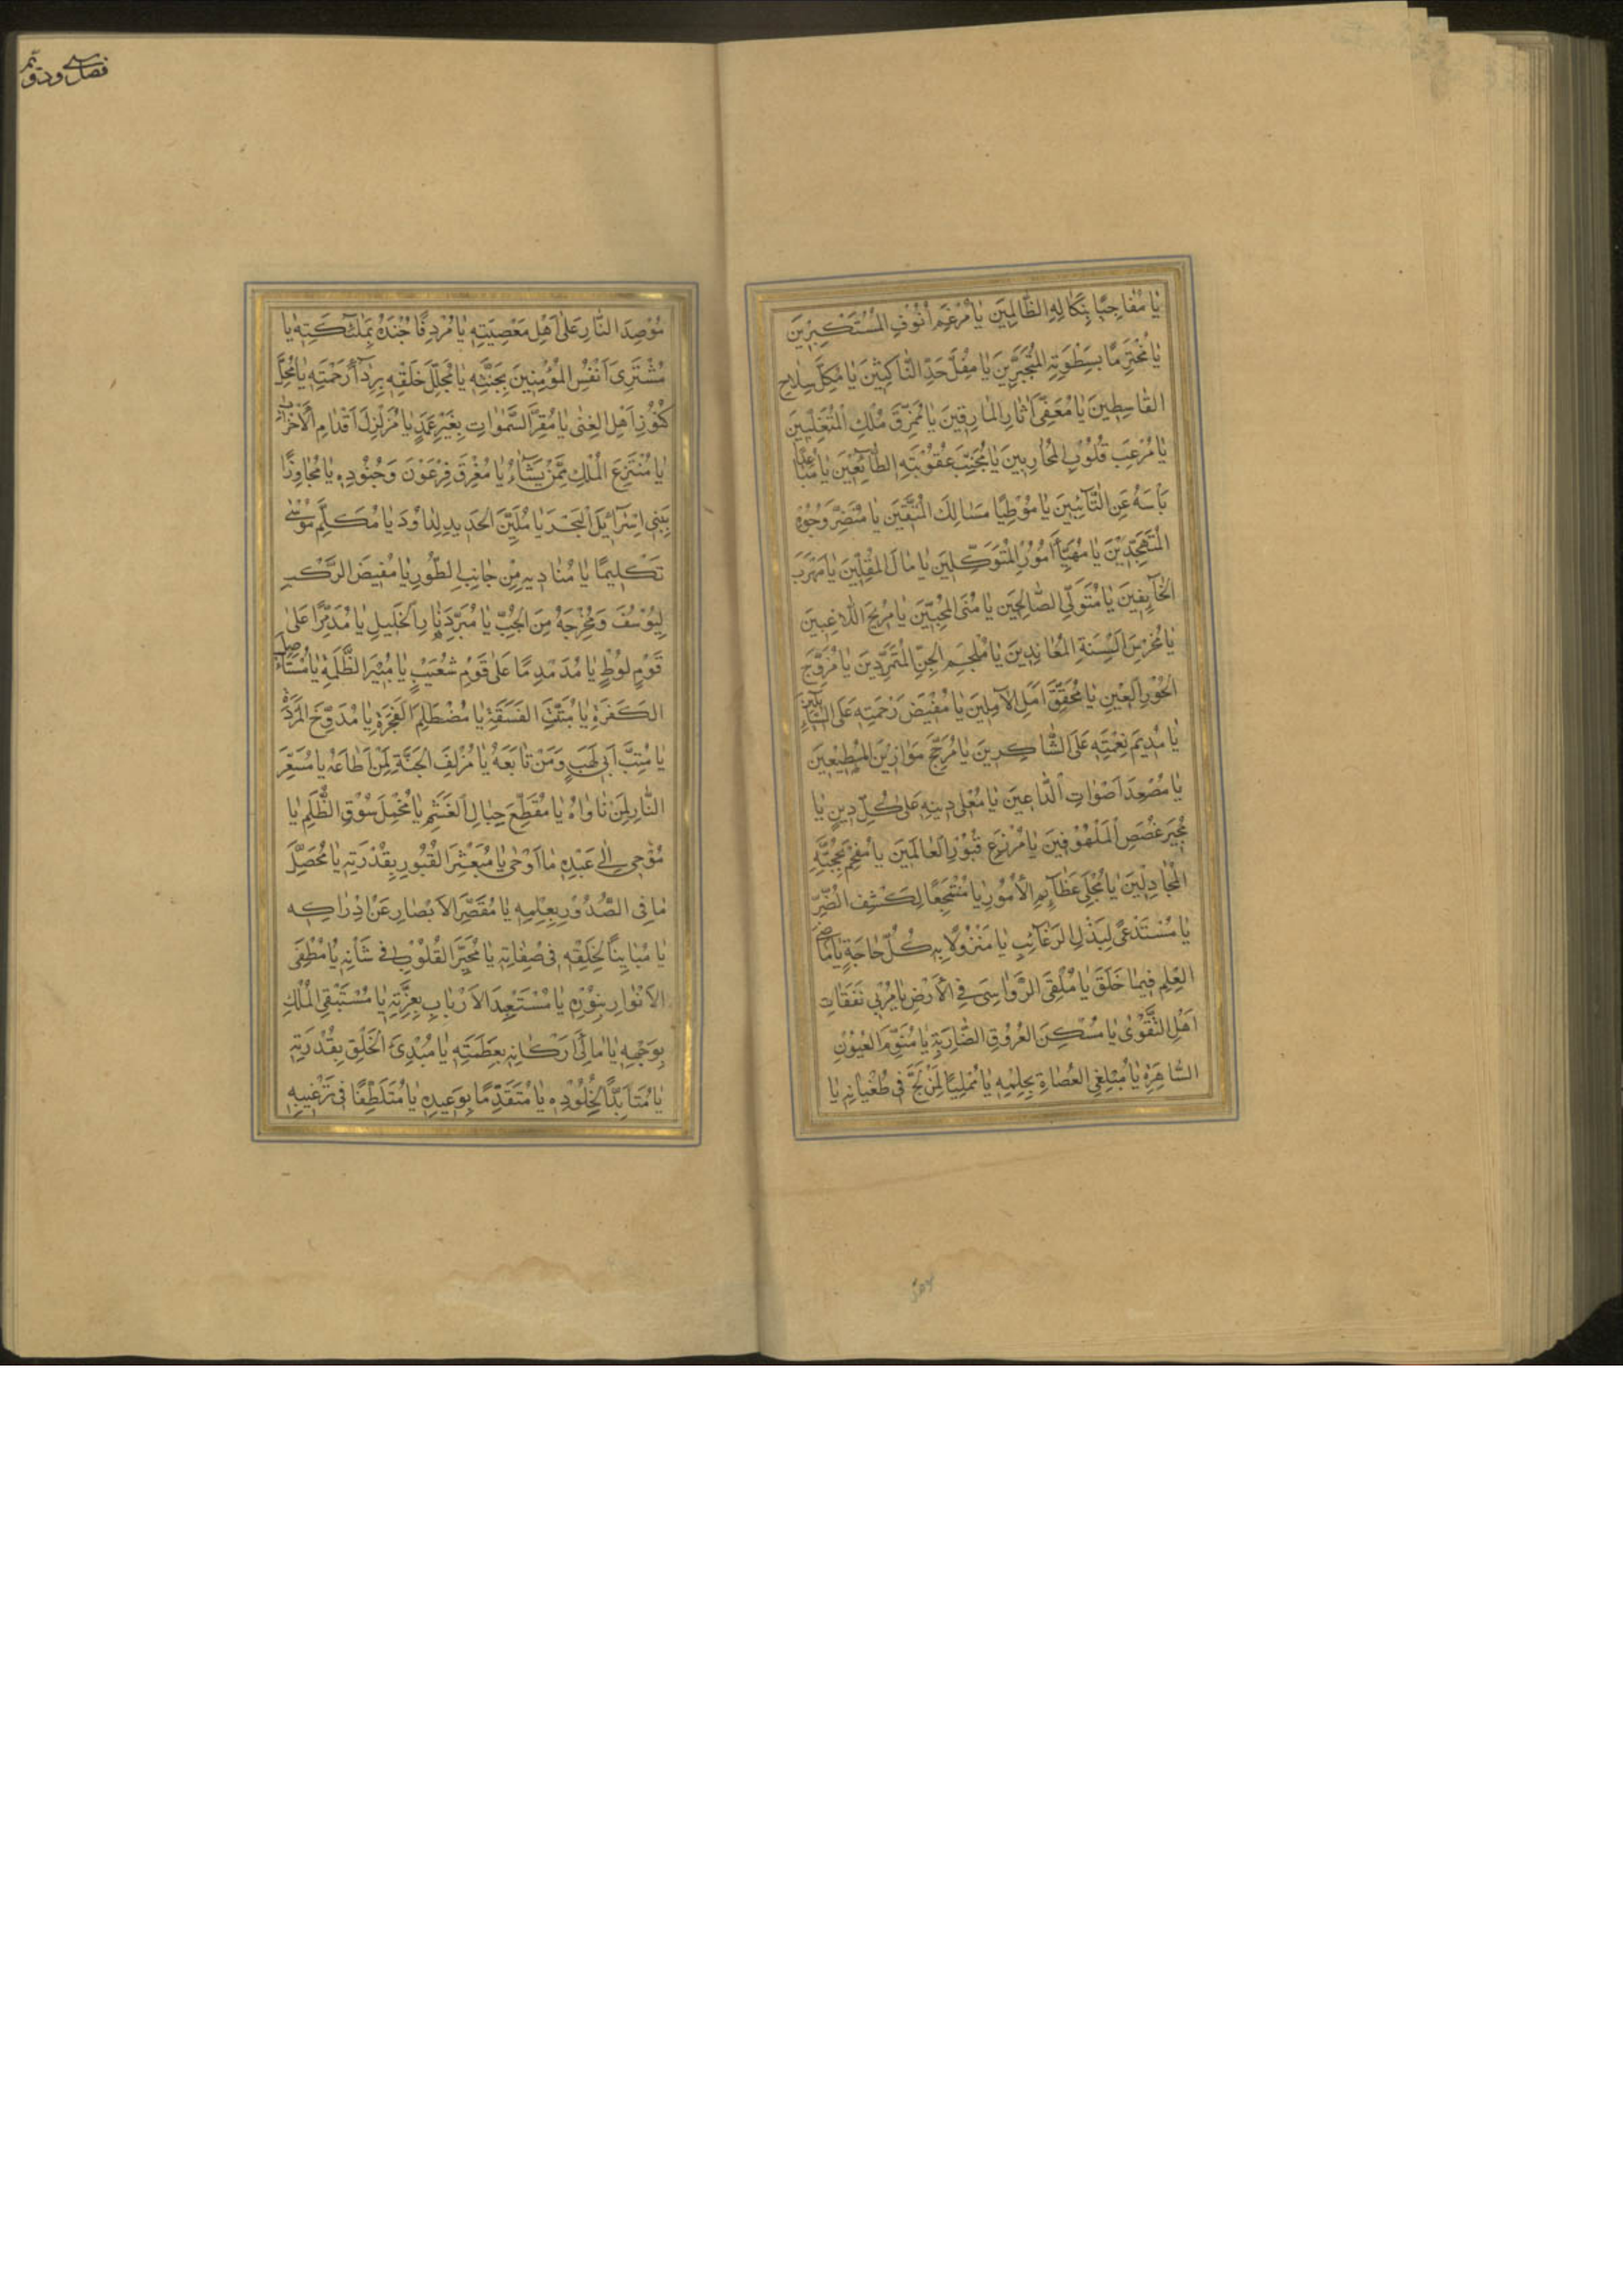 يَا مُفَاجِئًا بِنَكَالِهِ الظَّالِمِينَ يَا مُرْغِمَ أُنُوفِ الْمُسْتَكْبِرِينَ
يَا مُخْتَرِمًا بِسَطْوَتِهِ الْمُتَجَبِّرِينَ يَا مُفِلَّ حَدِّ النَّاكِثِينَ يَا مُكِلَّ سِلَاحِ
الْقَاسِطِينَ يَا مُعَفِّيَ آثَارِ الْمَارِقِينَ يَا مُمَزِّقَ مُلْكِ الْمُتَغَلِّبِينَ
يَا مُرْعِبَ قُلُوبِ الْمُحَارِبِينَ يَا مُجَنِّبَ عُقُوبَتِهِ الطَّائِعِينَ يَا مُبَاعِدًا
بَأْسَهُ عَنِ التَّائِبِينَ يَا مُوَطِّئًا مَسَالِكَ الْمُتَّقِينَ يَا مُنَضِّرَ وُجُوهِ
الْمُتَهَجِّدِينَ يَا مُهَيِّأَ أُمُورِ الْمُتَوَكِّلِينَ يَا مَالَ الْمُقِلِّينَ يَا مَهْرَبَ
الْخَائِفِينَ يَا مُتَوَلِّيَ الصَّالِحِينَ يَا مُنَى الْمُحِبِّينَ يَا مُرِيحَ اللَّاغِبِينَ
يَا مُخْرِسَ أَلْسِنَةِ الْمُعَانِدِينَ يَا مُلْجِمَ الْجِنِّ الْمُتَمَرِّدِينَ يَا مُزَوِّجَ
الْحُورِ الْعِينِ يَا مُحَقِّقَ أَمَلِ الْآمِلِينَ يَا مُفِيضَ رَحْمَتِهِ عَلَى السَّائِلِينَ
يَا مُدِيمَ نِعْمَتِهِ عَلَى الشَّاكِرِينَ يَا مُرَجِّحَ مَوَازِينِ الْمُطِيعِينَ
يَا مُصْعِدَ أَصْوَاتِ الدَّاعِينَ يَا مُعْلِيَ دِينِهِ عَلَى كُلِّ دِينٍ يَا
مُجِيرَ غُصَصِ الْمَلْهُوفِينَ يَا مُتْرِعَ قُبُورِ الْعَالَمِينَ يَا مُفْحِمَ بِحُجَّتِهِ
الْمُجَادِلِينَ يَا مُجْلِيَ عَظَائِمِ الْأُمُورِ يَا مُنْتَجَعًا لِكَشْفِ الضُّرِّ
يَا مُسْتَدْعًى لِبَذْلِ الرَّغَائِبِ يَا مَنْزُولًا بِهِ كُلُّ حَاجَةٍ يَا مَاضِيَ
الْعِلْمِ فِيمَا خَلَقَ يَا مُلْقِيَ الرَّوَاسِيَ فِي الْأَرْضِ يَا مُرْبِيَ نَفَقَاتِ
أَهْلِ التَّقْوَى يَا مُسَكِّنَ الْعُرُوقِ الضَّارِبَةِ يَا مُنَوِّمَ الْعُيُونِ
السَّاهِرَةِ يَا مُتَلَقِّيَ الْعُصَاةِ بِحِلْمِهِ يَا مُمْلِيًا لِمَنْ لَجَّ فِي طُغْيَانِهِ يَا
مُوصِدَ النَّارِ عَلَى أَهْلِ مَعْصِيَتِهِ يَا مُرْدِفًا جُنْدَهُ بِمَلَائِكَتِهِ يَا
مُشْتَرِيَ أَنْفُسِ الْمُؤْمِنِينَ بِجَنَّتِهِ يَا مُجَلِّلَ خَلْقِهِ بِرِدَاءِ رَحْمَتِهِ يَا مُحِلَّ
كُنُوزِ أَهْلِ الْغِنَى يَا مُقِرَّ السَّمَوَاتِ بِغَيْرِ عَمَدٍ يَا مُزَلْزِلَ أَقْدَامِ الْأَحْزَابِ
يَا مُنْتَزِعَ الْمُلْكِ مِمَّنْ يَشَاءُ يَا مُغْرِقَ فِرْعَوْنَ وَجُنُودِهِ يَا مُجَاوِزًا
بِبَنِي إِسْرَائِيلَ الْبَحْرَ يَا مُلَيِّنَ الْحَدِيدِ لِدَاوُدَ يَا مُكَلِّمَ مُوسَى
تَكْلِيمًا يَا مُنَادِيهِ مِنْ جَانِبِ الطُّورِ يَا مُقَيِّضَ الرَّكْبِ
لِيُوسُفَ وَمُخْرِجَهُ مِنَ الْجُبِّ يَا مُبَرِّدَ نَارِ الْخَلِيلِ يَا مُدَمِّرًا عَلَى
قَوْمِ لُوطٍ يَا مُدَمْدِمًا عَلَى قَوْمِ شُعَيْبٍ يَا مُتَبِّرَ الظَّلَمَةِ يَا مُسْتَأْصِلَ
الْكَفَرَةِ يَا مُبَتِّتَ الْفَسَقَةِ يَا مُصْطَلِمَ الْفَجَرَةِ يَا مُدَوِّخَ الْمَرَدَةِ
يَا مُتِبَّ أَبِي لَهَبٍ وَمَنْ تَابَعَهُ يَا مُزْلِفَ الْجَنَّةِ لِمَنْ أَطَاعَهُ يَا مُسَعِّرَ
النَّارِ لِمَنْ نَاوَاهُ يَا مُقَطِّعَ حِبَالِ الْغَشْمِ يَا مُخْمِلَ سُوقِ الظُّلْمِ يَا
مُوحِيَ إِلَى عَبْدِهِ مَا أَوْحَى يَا مُبَعْثِرَ الْقُبُورِ بِقُدْرَتِهِ يَا مُحَصِّلَ
مَا فِي الصُّدُورِ بِعِلْمِهِ يَا مُقَصِّرَ الْأَبْصَارِ عَنْ إِدْرَاكِهِ
يَا مُبَايِنًا لِخَلْقِهِ فِي صِفَاتِهِ يَا مُحَيِّرَ الْقُلُوبِ فِي شَأْنِهِ يَا مُطْفِئَ
الْأَنْوَارِ بِنُورِهِ يَا مُسْتَعْبِدَ الْأَرْبَابِ بِعِزَّتِهِ يَا مُسْتَبْقِيَ الْمُلْكِ
بِوَجْهِهِ يَا مَالِئَ أَرْكَانِهِ بِعَظَمَتِهِ يَا مُبْدِئَ الْخَلْقِ بِقُدْرَتِهِ
يَا مُتَأَبِّدًا بِخُلُودِهِ يَا مُتَقَدِّمًا بِوَعِيدِهِ يَا مُتَلَطِّفًا فِي تَرْغِيبِهِ